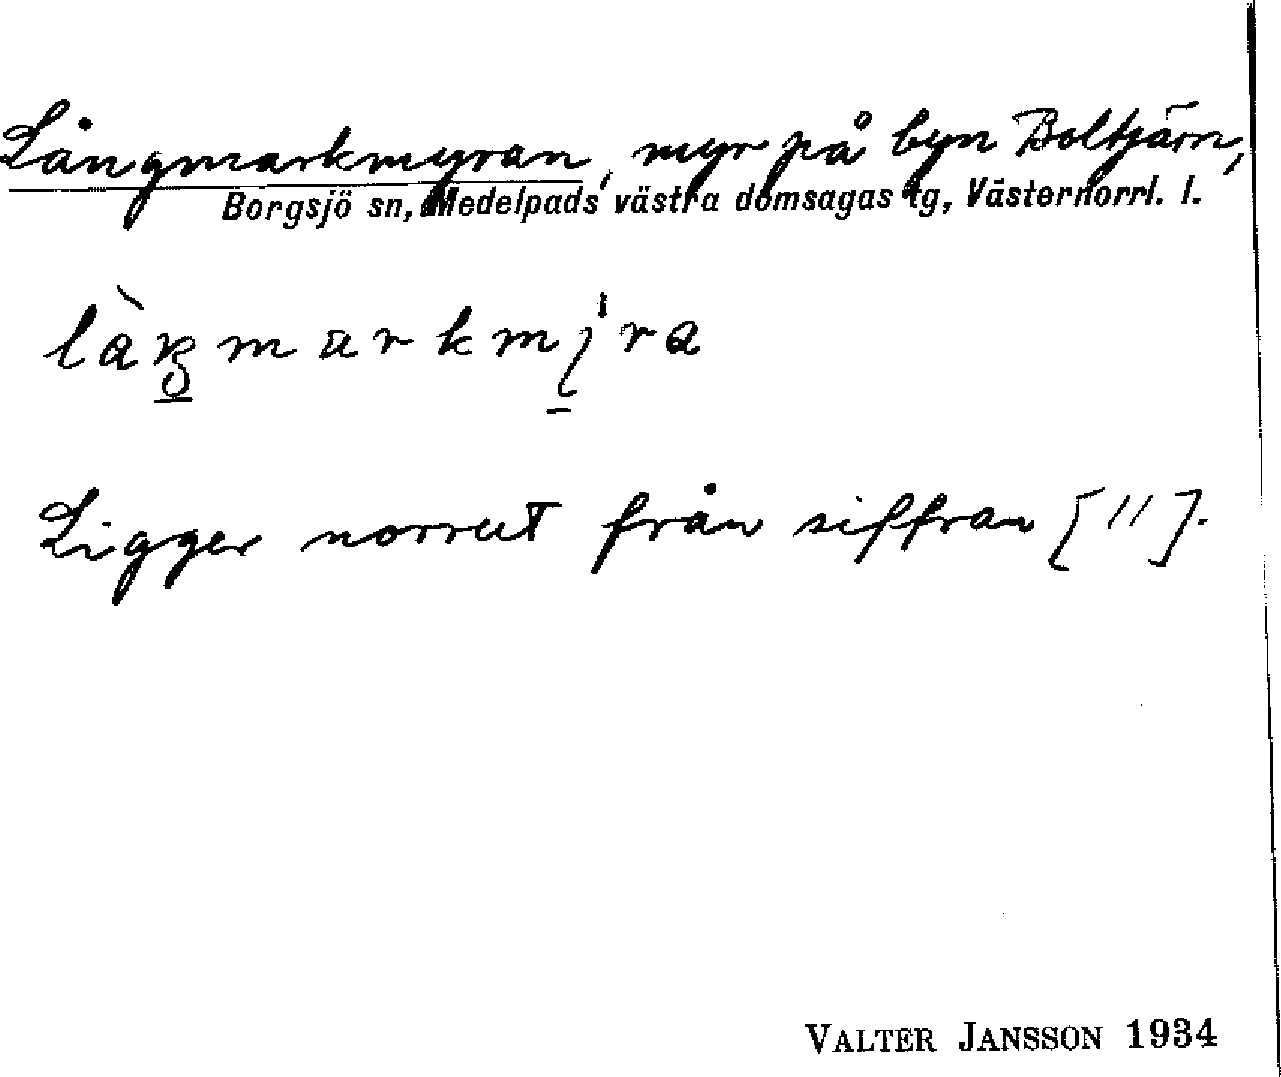 Långmarkmyran, myr på byn Boltjärn,
Borgsjö sn, Medelpads västra domsagas tg, Västernorrl. l.
Ligger norrut från siffran [11].
VALTER JANSSON 1934